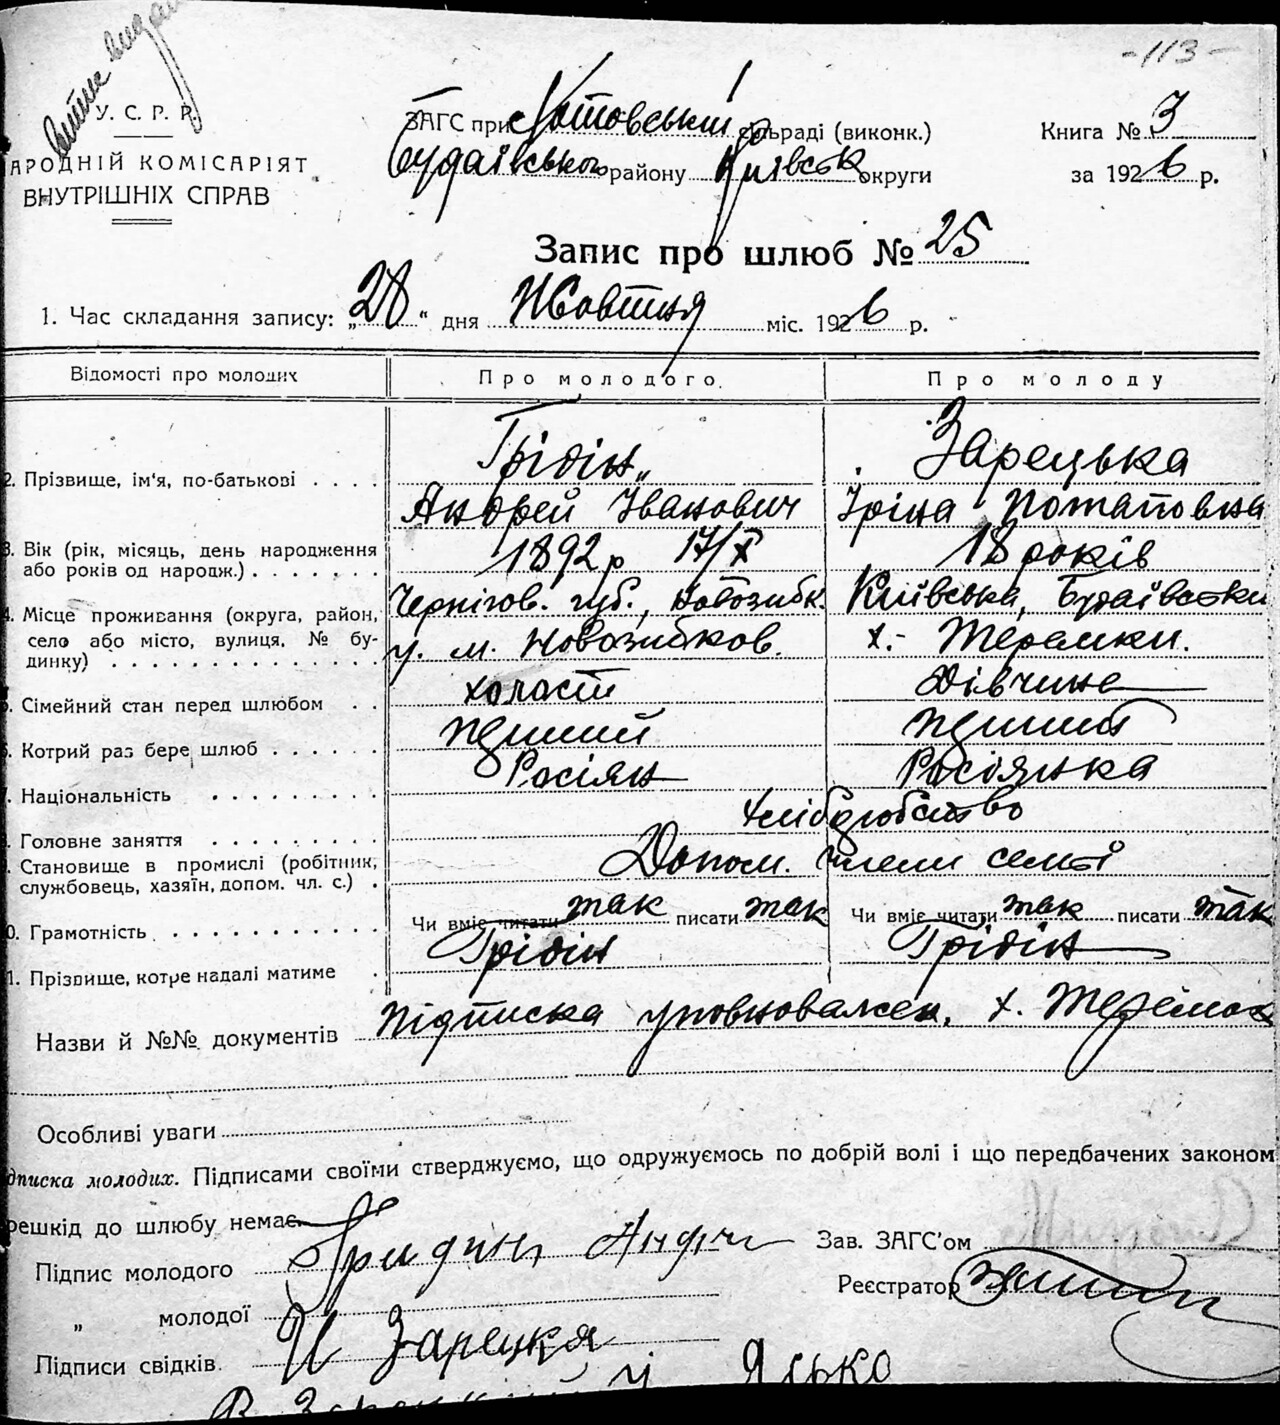 -113-
У. С. Р. Р.
АРОДНІЙ КОМІСАРІЯТ
ВНУТРІШНІХ СПРАВ
ЗАГС при сільраді (виконк.)
Будаївського району Київськ округи
Книга № 3
за 1926 р.
Запис про шлюб № 25
1. Час складання запису: „28" дня Жовтня міс. 1926 р.
Відомості про молодих
Про молодого.
Про молоду
2. Прізвище, ім'я, по-батькові
Грідін
Андрей Іванович
Зарецька
Іріна Потаповна
3. Вік (рік, місяць, день народження
або років од нарощж.)
1892 р 17/X
18 років
4. Місце проживання (округа, район,
село або місто, вулиця, № бу-
динку)
Чернігов. губ., Новозибк.
у. м. Новозибков.
Київська, Будаївськи
х.- Теремки.
5. Сімейний стан перед шлюбом
холост
Дівчина
6. Котрий раз бере шлюб
перший
перший
Національність
Росіян
Росіянка
Головне заняття
хліборобство
Становище в промислі (робітник,
службовець, хазяїн, допом. чл. с.)
Допом. члени семї
0. Грамотність
Чи вміє читати так писати так
Чи вміє читати так писати так
1. Прізвище, котре надалі матиме
Грідін
Грідін
Назви й №№ документів Підписка уповноважен. х. Теремки
Особливі уваги
дписка молодих. Підписами своїми стверджуємо, що одружуємось по добрій волі і що передбачених законом
решкід до шлюбу немає.
Підпис молодого Гридин
Зав. ЗАГС'ом
Реєстратор
„ молодої И Зарецкя
Підписи свідків.
Ялько